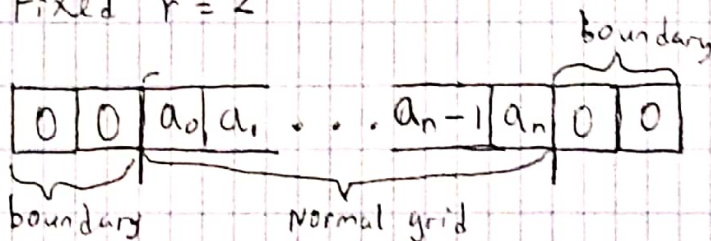 Fixed r = 2
boundary
0 0 a₀ a₁ . . . aₙ-1 aₙ 0 0
boundary
Normal grid